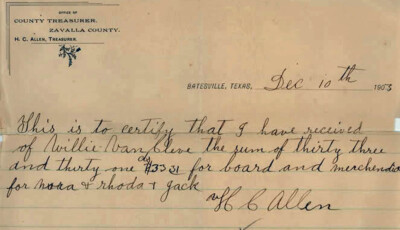 OFFICE OF
COUNTY TREASURER,
ZAVALLA COUNTY.
H. C. ALLEN, TREASURER.
BATESVILLE, TEXAS, Dec 10th 1903
This is to certify that I have received
of Willie Van Cleve the sum of thirty three
and thirty one $33 31 for board and merchendis
for nora & rhoda & jack
H C Allen